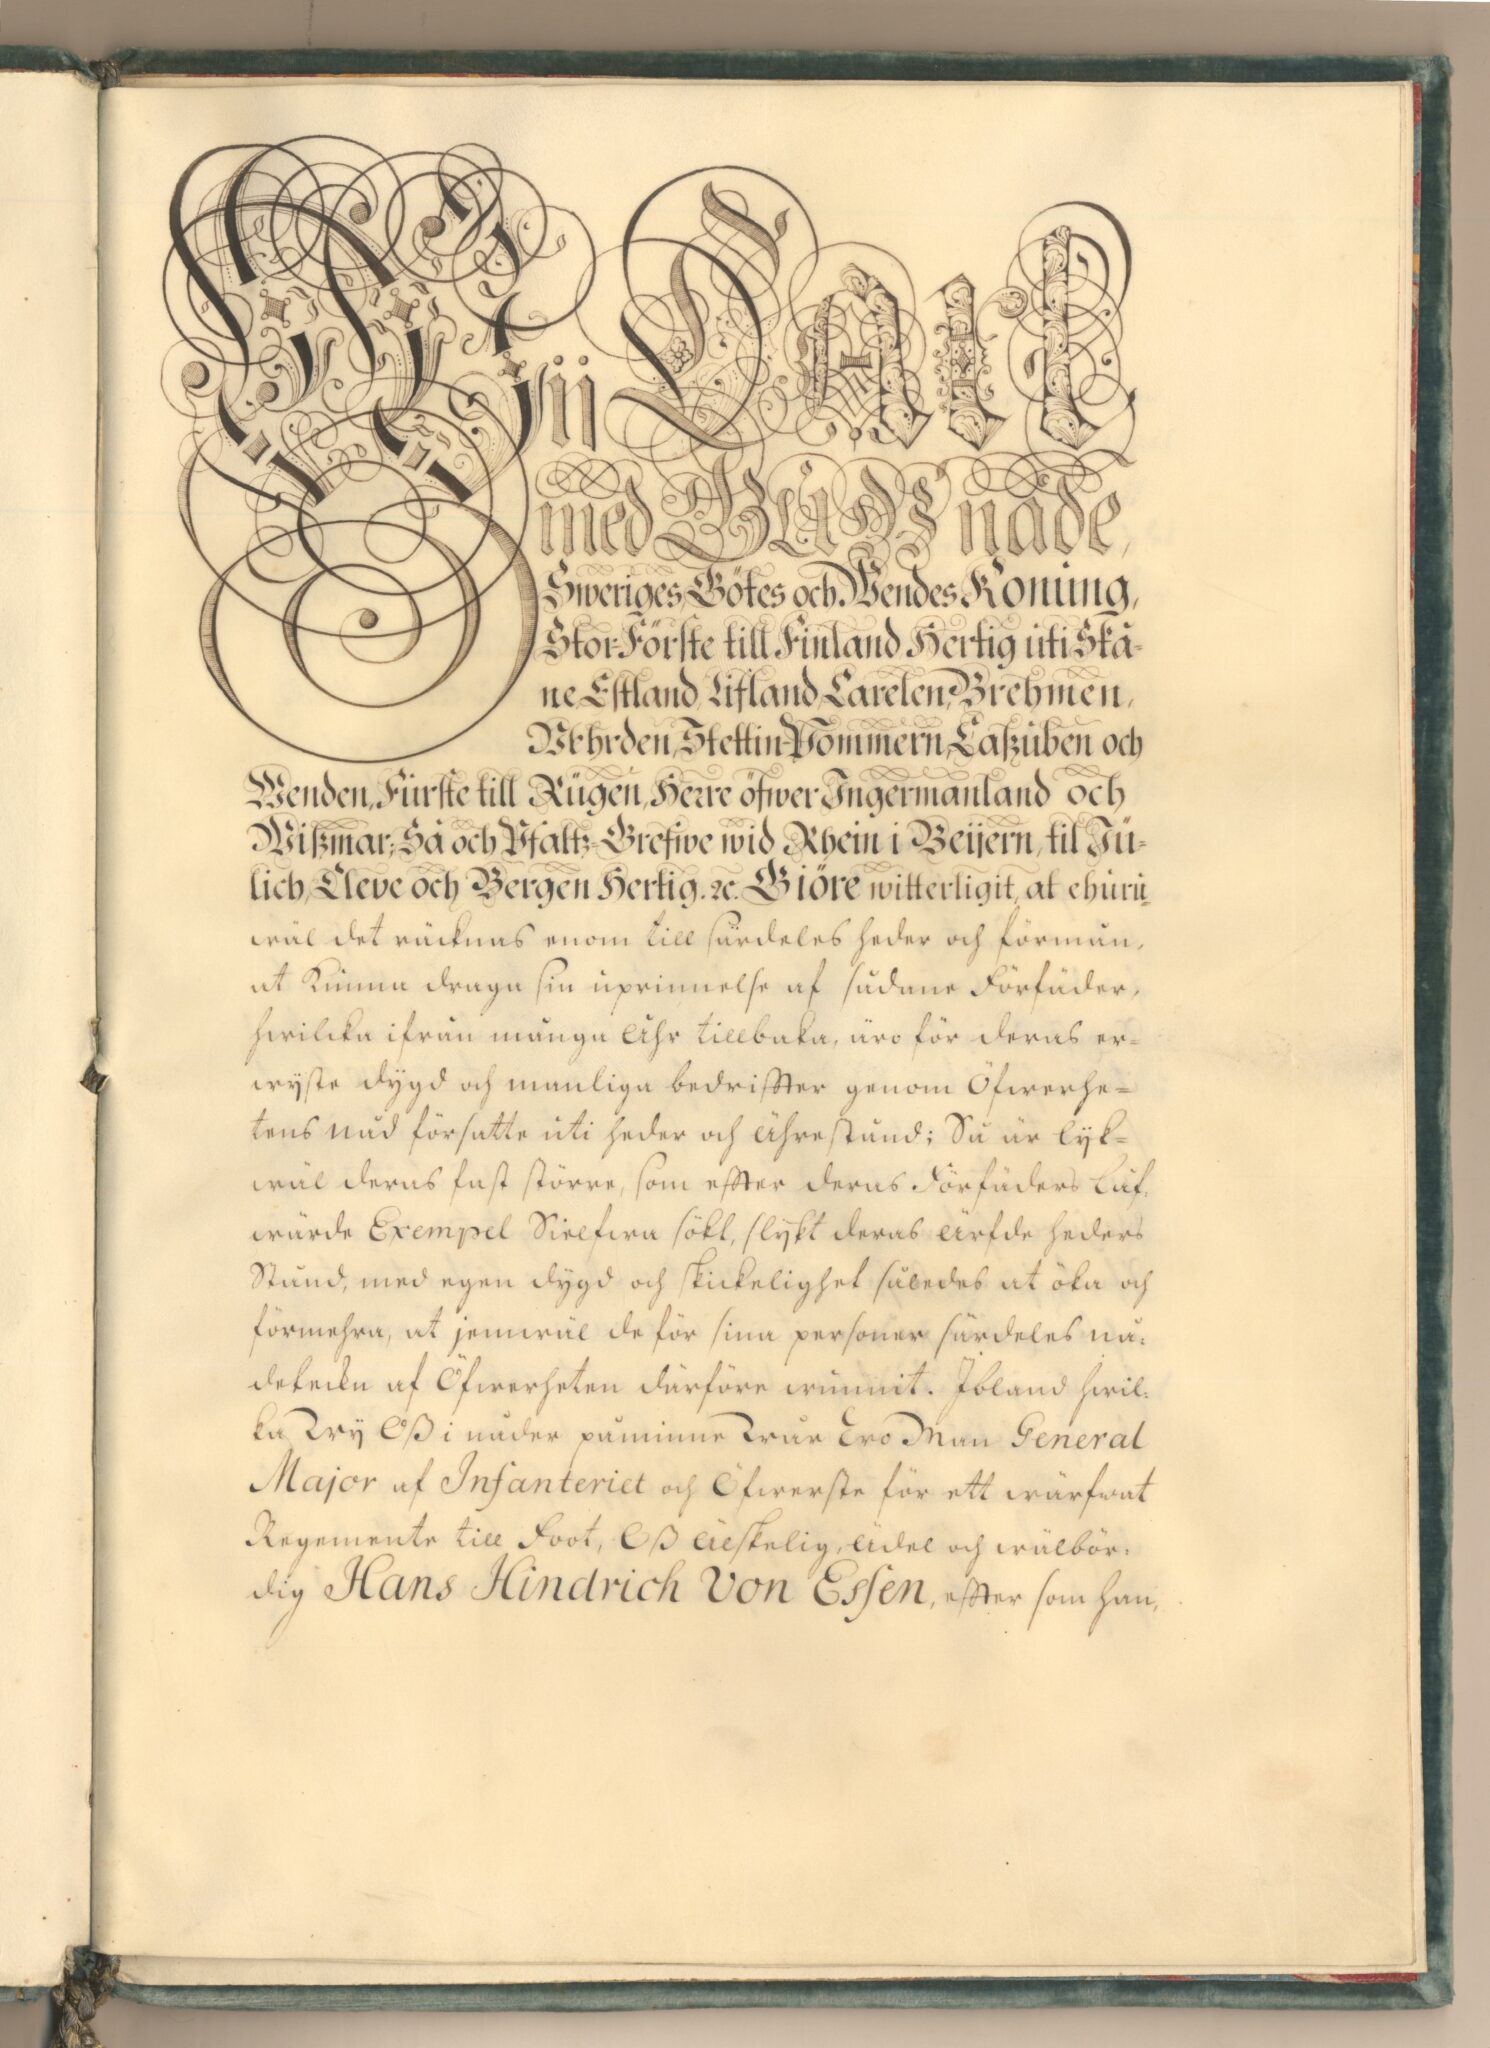 Wii Carl
med Gudz nåde,
Sweriges, Götes och Wendes Konung,
Stor-Förste till Finland, Hertig uti Skå-
ne, Estland, Lifland, Carelen, Brehmen,
Vehrden, Stettin-Pommern, Caßuben och
Wenden, Fürste till Rügen, Herre öfwer Ingermanland och
Wißmar; Så och Pfaltz-Grefwe wid Rhein i Beijern, til Jü-
lich, Cleve och Bergen Hertig. &c. Giöre witterligit, at ehuru
wäl det räcknas enom till särdeles heder och förmån,
at kunna draga sin uprinnelse af sådane Förfäder,
hwilcka ifrån många Åhr tillbaka, äro för deras er-
wyste dygd och manliga bedriffter genom Öfwerhe-
tens nåd försatte uti heder och Ährestånd; Så är lyk-
wäl deras fast större, som effter deras Förfäders låf-
wärde Exempel Sielfwa sökt, slykt deras ärfde heders
Stånd, med egen dygd och skickelighet således at öka och
förmehra, at jemwäl de för sina personer särdeles nå-
detekn af Öfwerheten därföre wunnit. Ibland hwil-
ka Wy Oß i nåder påminne Wår Tro Man General
Major af Infanteriet och Öfwerste för ett wärfwat
Regemente till Foot, Oß Älskelig, ädel och wälbör-
dig Hans Hindrich Von Essen, effter som han,